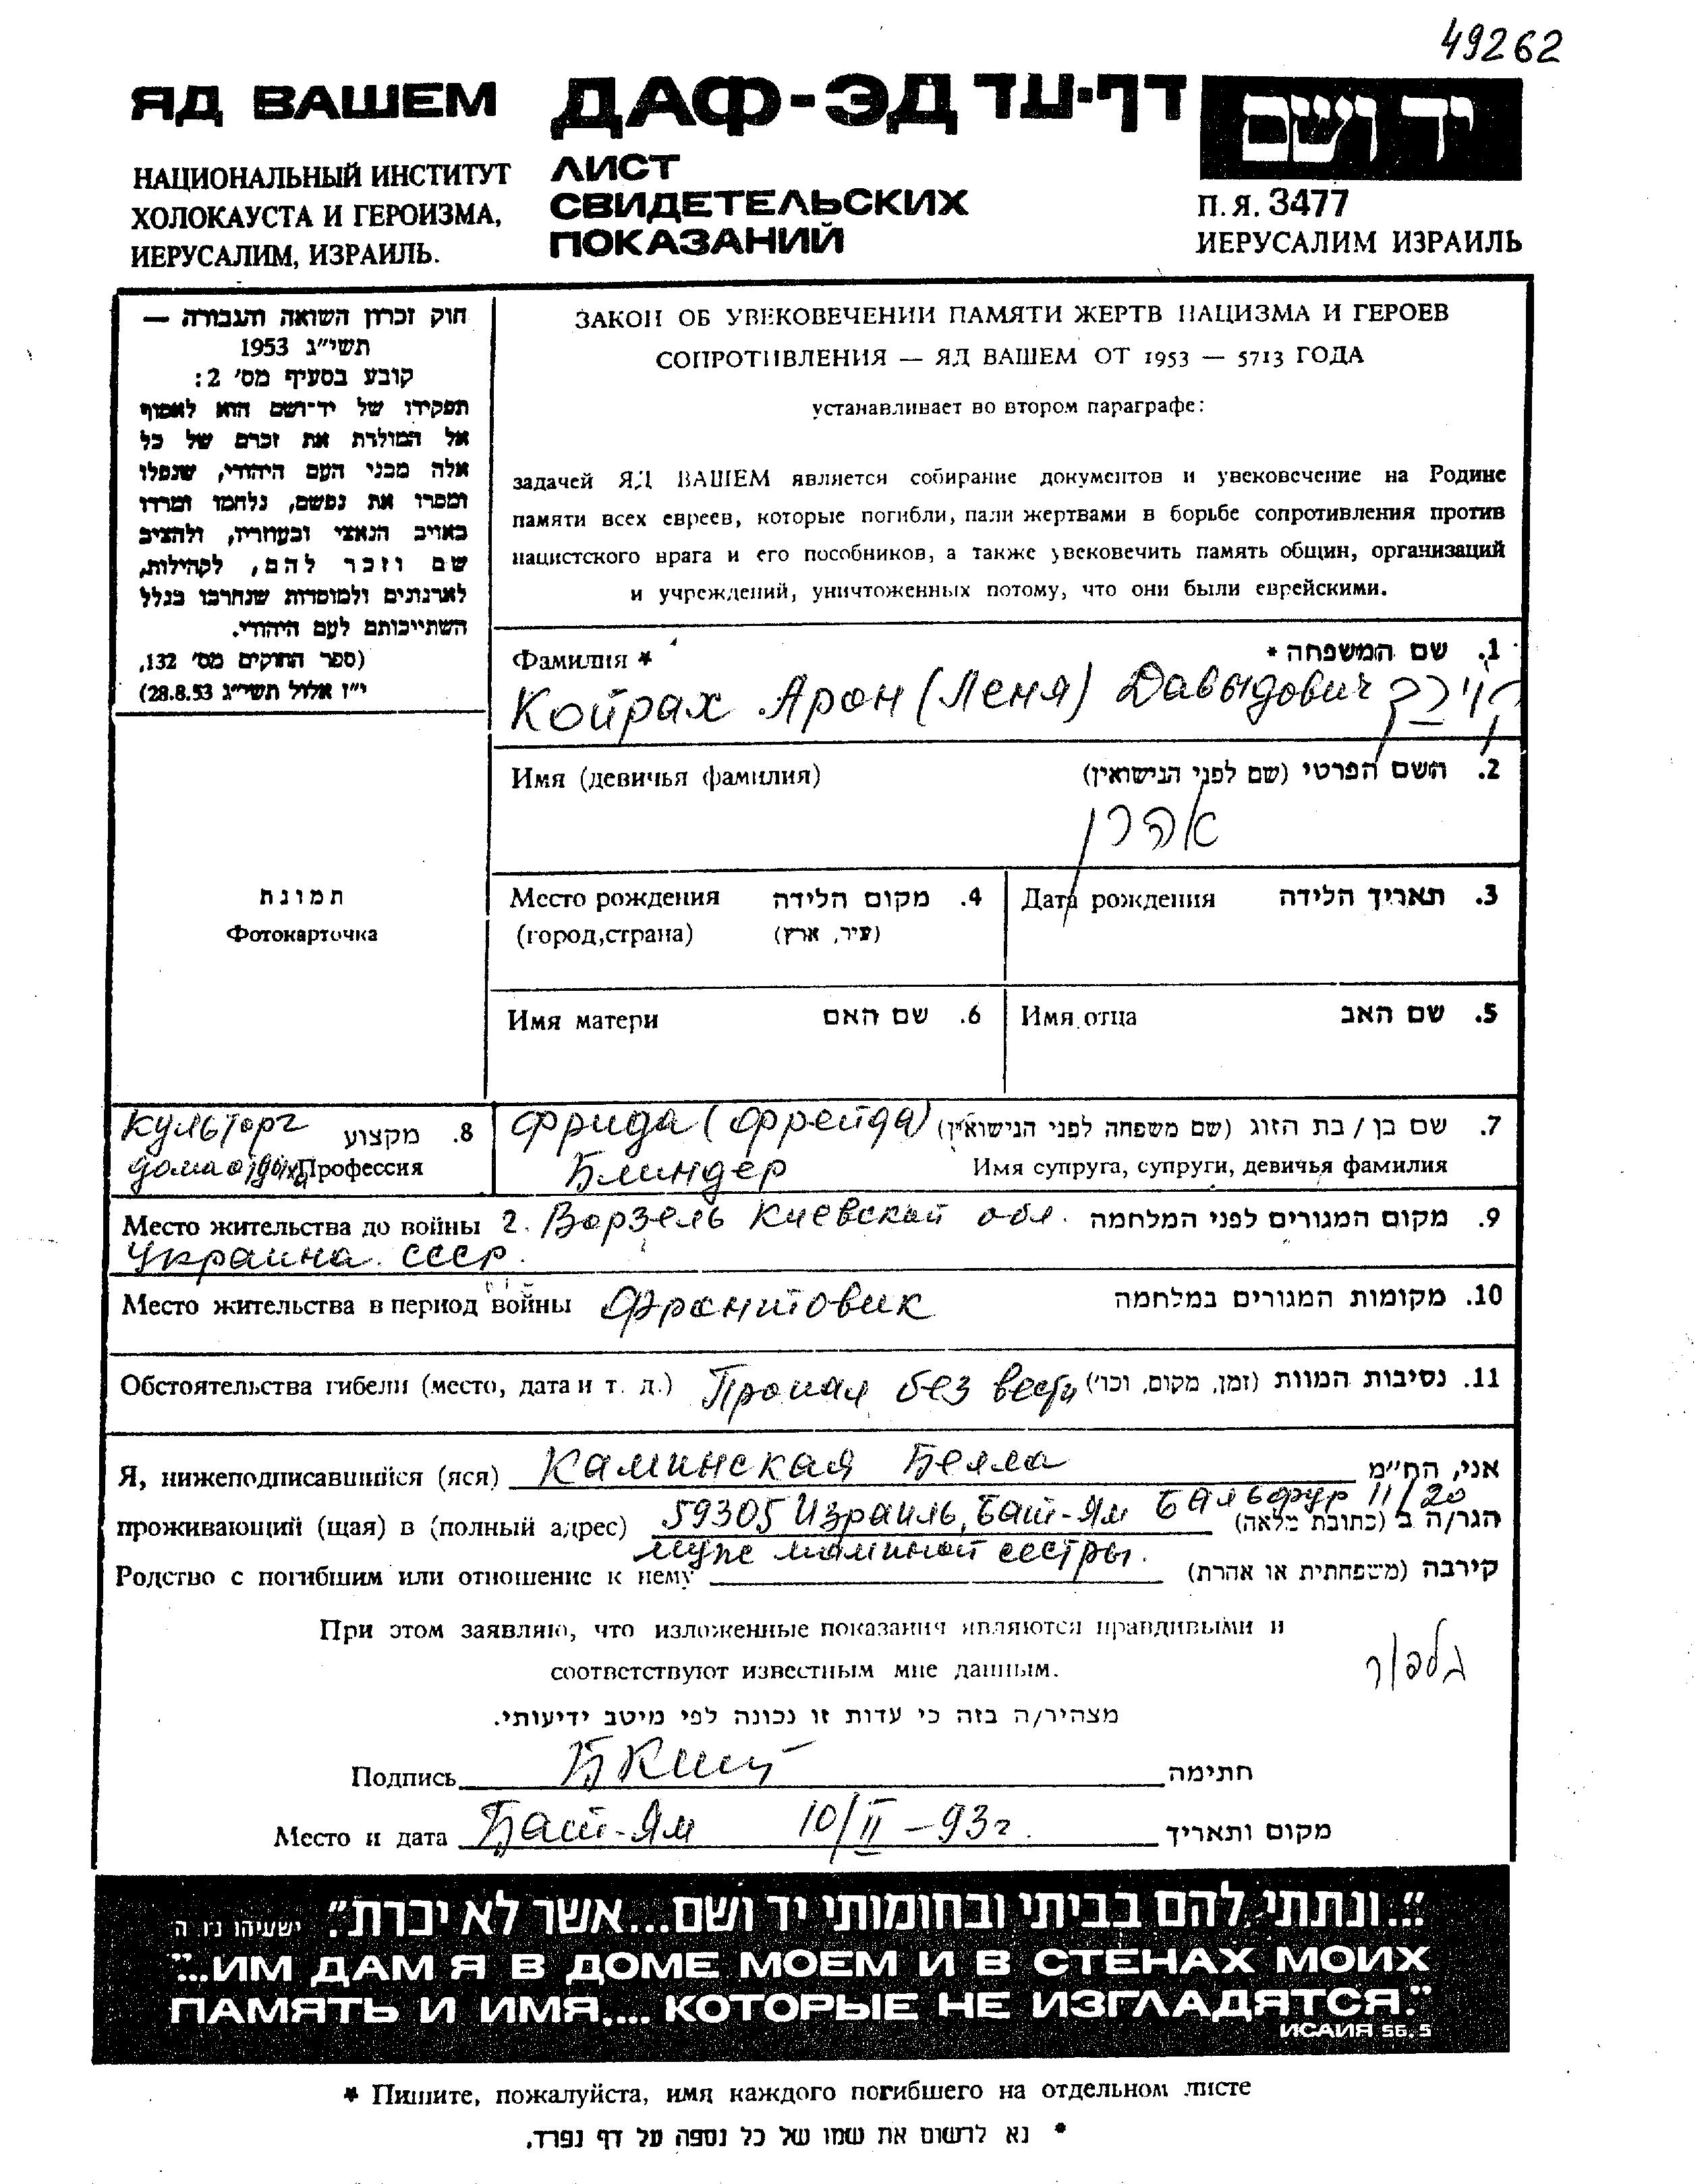 49262
ЯД ВАШЕМ
ДАФ-ЭД דף-עד
יד ושם
НАЦИОНАЛЬНЫЙ ИНСТИТУТ
ХОЛОКАУСТА И ГЕРОИЗМА,
ИЕРУСАЛИМ, ИЗРАИЛЬ.
ЛИСТ
СВИДЕТЕЛЬСКИХ
ПОКАЗАНИЙ
П.Я. 3477
ИЕРУСАЛИМ ИЗРАИЛЬ
חוק זכרון השואה והגבורה —
תשי״ג 1953
קובע בסעיף מס׳ 2:
תפקידו של יד-ושם הוא לאסוף
אל המולדת את זכרם של כל
אלה מבני העם היהודי, שנפלו
ומסרו את נפשם, נלחמו ומרדו
באויב הנאצי ובעוזריו, ולהציב
שם וזכר להם, לקהילות,
לארגונים ולמוסדות שנחרבו בגלל
השתייכותם לעם היהודי.
(ספר החוקים מס׳ 132,
י״ז אלול תשי״ג 28.8.53)
ЗАКОН ОБ УВЕКОВЕЧЕНИИ ПАМЯТИ ЖЕРТВ НАЦИЗМА И ГЕРОЕВ
СОПРОТИВЛЕНИЯ — ЯД ВАШЕМ ОТ 1953 — 5713 ГОДА
устанавливает во втором параграфе:
задачей ЯД ВАШЕМ является собирание документов и увековечение на Родине
памяти всех евреев, которые погибли, пали жертвами в борьбе сопротивления против
нацистского врага и его пособников, а также увековечить память общин, организаций
и учреждений, уничтоженных потому, что они были еврейскими.
Фамилия *
1. שם המשפחה *
Койрах Арон (Леня) Давыдович קוירך
Имя (девичья фамилия)
2. השם הפרטי (שם לפני הנישואין)
אהרן
תמונה
Фотокарточка
Место рождения 4. מקום הלידה
(город, страна) (עיר, ארץ)
Дата рождения 3. תאריך הלידה
Имя матери 6. שם האם
Имя отца 5. שם האב
Культорг 8. מקצוע
дома отдыха Профессия
Фрида (Фрейда) 7. שם בן / בת הזוג (שם משפחה לפני הנישואין)
Блиндер Имя супруга, супруги, девичья фамилия
Место жительства до войны г. Ворзель Киевской обл. 9. מקום המגורים לפני המלחמה
Украина. СССР.
Место жительства в период войны Фронтовик 10. מקומות המגורים במלחמה
Обстоятельства гибели (место, дата и т. д.) Пропал без вести 11. נסיבות המוות (זמן, מקום, וכו׳)
Я, нижеподписавшийся (яся) Каминская Белла אני, הח״מ
проживающий (щая) в (полный адрес) 59305 Израиль, Бат-Ям Бальфур 11/20 הגר/ה ב (כתובת מלאה)
Родство с погибшим или отношение к нему муж маминой сестры. קירבה (משפחתית או אחרת)
При этом заявляю, что изложенные показания являются правдивыми и
соответствуют известным мне данным.
מצהיר/ה בזה כי עדות זו נכונה לפי מיטב ידיעותי.
Подпись חתימה
Место и дата Бат-Ям 10/II-93г. מקום ותאריך
"...ונתתי להם בביתי ובחומותי יד ושם...אשר לא יכרת". ישעיהו נו ה
"...ИМ ДАМ Я В ДОМЕ МОЕМ И В СТЕНАХ МОИХ
ПАМЯТЬ И ИМЯ.... КОТОРЫЕ НЕ ИЗГЛАДЯТСЯ."
ИСАИЯ 56. 5
* Пишите, пожалуйста, имя каждого погибшего на отдельном листе
* נא לרשום את שמו של כל נספה על דף נפרד.